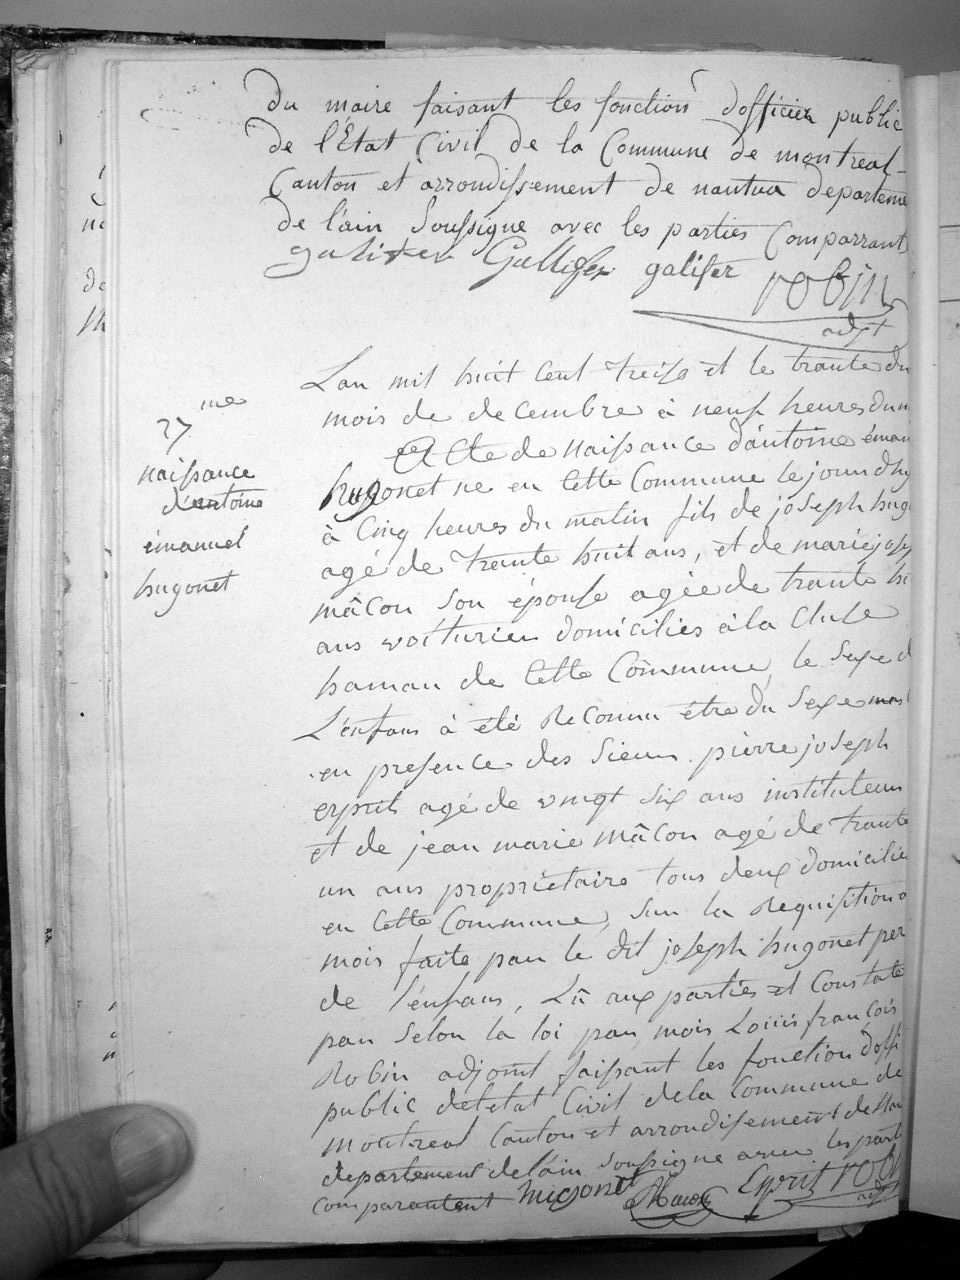 du maire faisant les fonction dofficier public
de l'État Civil de la Commune de montreal
Canton et arrondissement de nantua departeme
de l'ain Soussigne avec les parties Comparrant
galifer Gallifer galifer robin
adjt
Lan mil huit Cent treise et le trante du
mois de decembre à neuf heures du m
27me
naissance
d'antoine
émanuel
hugonet
Acte de naissance d'antoine éman
hugonet ne en Cette Commune le jourdhuy
à Cinq heures du matin fils de joseph hugo
agé de trante huit ans, et de marie josep
mâcon Son épouse agée de trante hu
ans voiturier domiciliés à la Cluse
hamau de Cette Commune, le Sexe d
L'enfans à été Reconnu étre du Sexe mas
en presence des Sieurs pierre joseph
esprit agé de vingt six ans instituteur
et de jean marie mâcon agé de trante
un ans propriétaire tous deux domicilié
en Cette Commune, Sur la Requisition a
mois faite par le dit joseph hugonet per
de l'enfans, Lû aux parties et Constaté
par Selon la loi par mois Louis françois
Robin adjoint faisant les fonction d'offi
public de letat Civil de la Commune de
montreal Canton et arrondisement de Nan
departement de l'ain soussigne avec les parti
comparantent hugonet Macon Esprit rob
adjt